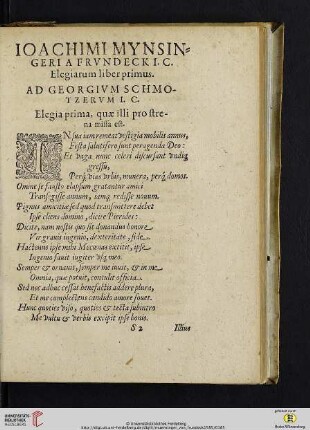 IOACHIMI MYNSIN-
GERI A FRVNDECK I. C.
Elegiarum liber primus.
AD GEORGIVM SCHMO-
TZERVM I. C.
Elegia prima, quæ illi pro stre-
na missa est.
IN sua iam remeat vestigia mobilis annus,
Festa salutifero sunt peragenda Deo:
Et vaga nunc celeri discursant vndiq
gressu,
Perq́ vias vrbis, munera, perq́ domos.
Omine se fausto elapsum gratantur amici
Transegisse annum, semq́ redisse nouum.
Pignus amicitiæ sed quod transmittere debet
Ipse cliens domino, dicite Pierides:
Dicite, nam nostis quo sit donandus honore
Vir grauis ingenio, dexteritate, fide.
Hactenus ipse mihi Mœcenas extitit, ipse
Ingenio fauit iugiter vsq meo.
Semper & ornauit, semper me iuuit, & in me
Omnia, quæ potuit, contulit officia.
Sed nec adhuc cessat benefactis addere plura,
Et me complectens candido amore fouet.
Hunc quoties viso, quoties & tecta subintro
Me vultu & verbis excipit ipse bonis.
S 2
Illius
UNIVERSITÄTS-
BIBLIOTHEK
HEIDELBERG
© Universitätsbibliothek Heidelberg
gefördert durch die